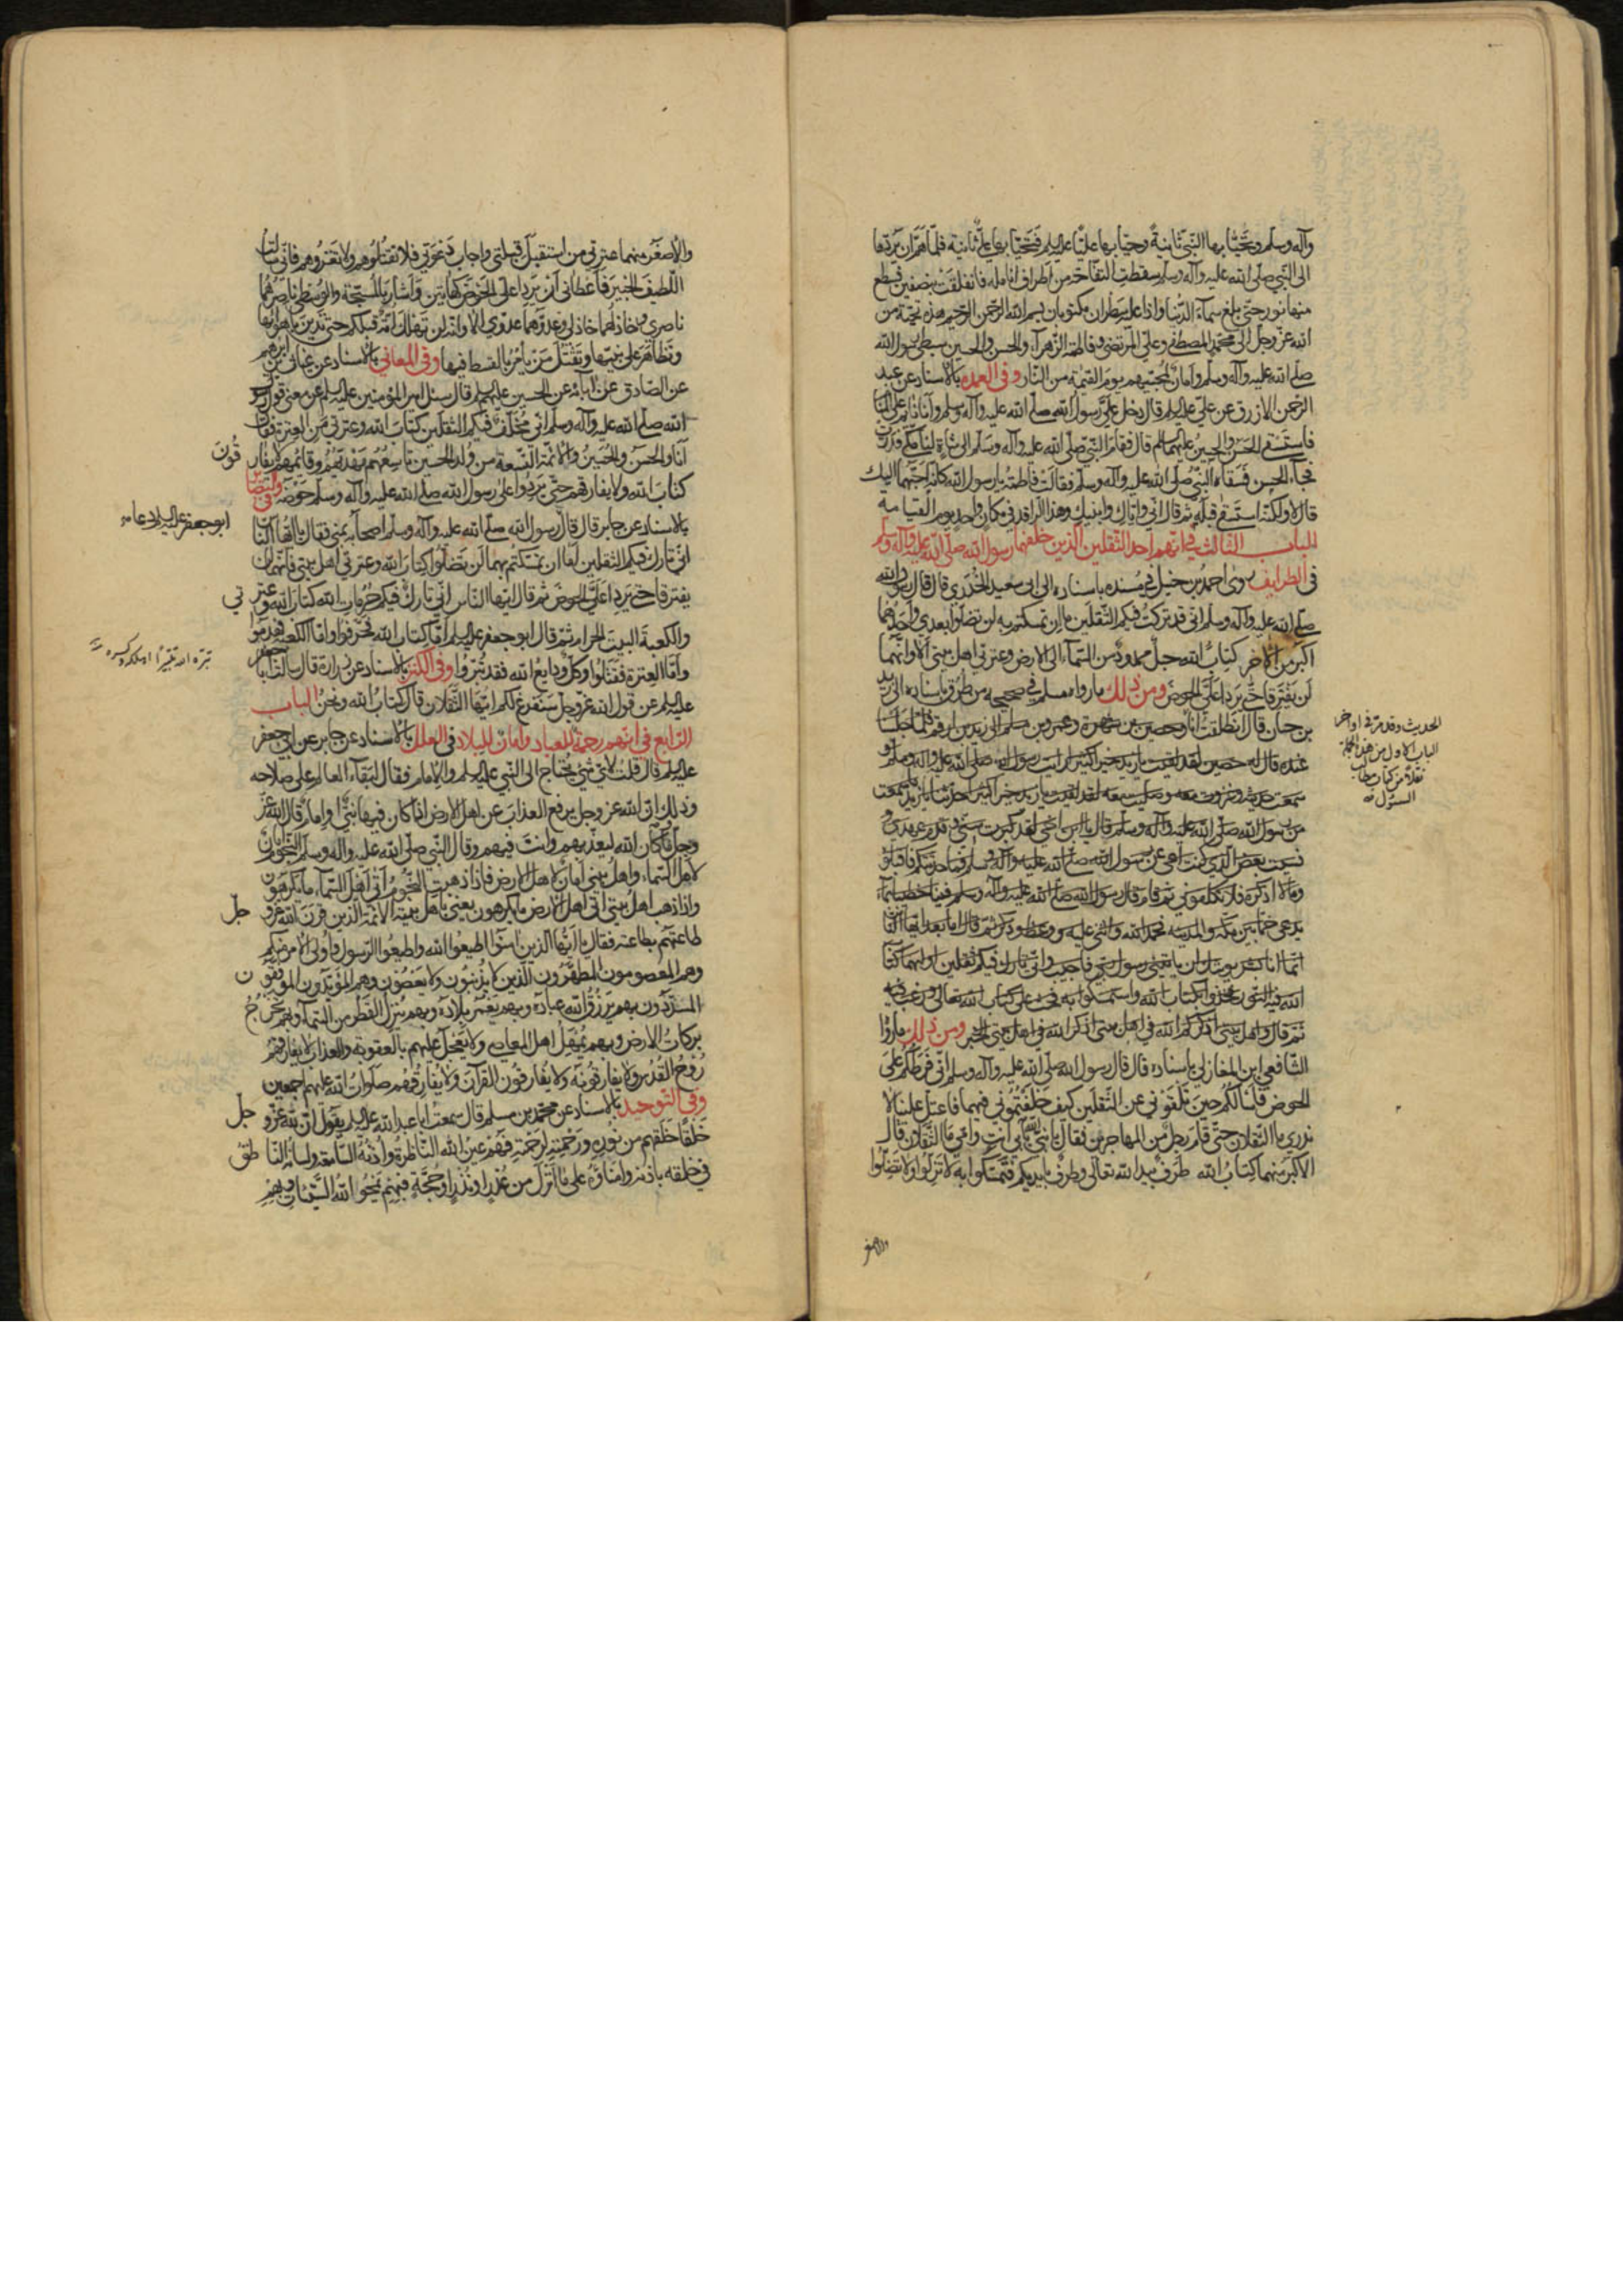 وآله وسلم وتحيّا بها النبي ثانيةً وحيّا بها عليّا عليه السلم فتحيّا بها عليّ ثانية فلمّا همّ ان يردّها
الى النبي صلى الله عليه وآله وسلم سقطت التفّاحة من اطراف انامله فانفلقت بنصفين فسطع
منها نور حتى بلغ سماء الدنيا واذا عليه سطران مكتوبان بسم الله الرحمن الرحيم هذه تحيّة من
الله عز وجل الى محمد المصطفى وعلي المرتضى وفاطمة الزهراء والحسن والحسين سبطي رسول الله
صلى الله عليه وآله وسلم وامان لمحبّيهم يوم القيمة من النار وفى العمدة بالاسناد عن عبد
الرحمن الازرق عن علي عليه السلم قال دخل عليّ رسول الله صلى الله عليه وآله وسلم وانا نائم على
فاستسقى الحسن والحسين عليهما السلم قال فقام النبي صلى الله عليه وآله وسلم الى شاة لنا
فجاء الحسن فسقاه النبي صلى الله عليه وآله وسلم فقالت فاطمة يا رسول الله كانه احبّهما اليك
قال لا ولكنه استسقى قبله ثم قال انى واياك وابنيك وهذا الراقد فى مكان واحد يوم القيامة
الباب الثالث فى انهم احد الثقلين الذين خلّفهما رسول الله صلى الله عليه وآله وسلم
فى الطرايف روى احمد بن حنبل فى مسنده باسناده الى ابى سعيد الخدرى قال قال رسول الله
صلى الله عليه وآله وسلم انى قد تركت فيكم الثقلين ما ان تمسكتم به لن تضلوا بعدى واحدهما
اكبر من الآخر كتاب الله حبل ممدود من السماء الى الارض وعترتى اهل بيتى الا وانهما
لن يفترقا حتى يردا علىّ الحوض ومن ذلك ما رواه مسلم فى صحيحه من طرق باسناده الى يزيد
بن حيان قال انطلقت انا وحصين بن سبرة وعمر بن مسلم الى زيد بن ارقم فلما جلسنا
عنده قال له حصين لقد لقيت يا زيد خيرا كثيرا رايت رسول الله صلى الله عليه وآله وسلم و
سمعت حديثه وغزوت معه وصليت لقد لقيت يا زيد خيرا كثيرا حدثنا يا زيد ما سمعت
من رسول الله صلى الله عليه وآله وسلم قال يا ابن اخى لقد كبرت سنى وقدم عهدى و
نسيت بعض الذى كنت اعى عن رسول الله صلى الله عليه وآله وسلم فما حدثتكم فاقبلوا
وما لا اذكره فلا تكلفونى ثم قام قال رسول الله صلى الله عليه وآله وسلم فينا خطيبا بماء
يدعى خما بين مكة والمدينة فحمد الله واثنى عليه ووعظ وذكر ثم قال اما بعد ايها الناس
انما انا بشر يوشك ان ياتينى رسول ربى فاجيب وانى تارك فيكم ثقلين اولهما كتاب
الله فيه النور فخذوا بكتاب الله واستمسكوا به فحث على كتاب الله تعالى ورغب فيه
ثم قال واهل بيتى اذكركم الله فى اهل بيتى اذكركم الله فى اهل بيتى الخبر ومن ذلك ما رواه
الشافعى ابن المغازلى باسناده قال قال رسول الله صلى الله عليه وآله وسلم انى فرطكم على
الحوض فاسالكم حين تلقونى عن الثقلين كيف خلفتمونى فيهما فاعتل علينا لا
ندرى ما الثقلان حتى قام رجل من المهاجرين فقال يا نبى الله بابى انت وامى ما الثقلان قال
الاكبر منهما كتاب الله طرف بيد الله تعالى وطرف بايديكم فتمسكوا به لا تزلوا ولا تضلوا
والاصغر
الحديث وقد مرّ فى اواخر
الباب الاول من هذه الجملة
نقلا من كتاب مطالب
السئول منه
والاصغر منهما عترتى من استقبل قبلتى واجاب دعوتى فلا تقتلوهم ولا تغزوهم فانى سالت
اللطيف الخبير فاعطانى ان يردا على الحوض كهاتين واشار بالمسبحة والوسطى ناصرهما
ناصرى وخاذلهما خاذلى وعدوهما عدوى الا وانه لن تهلك امة قبلكم حتى تدين باهوائها
وتظاهر على نبيها وتقتل من يامر بالقسط فيها وفى المعانى بالاسناد عن غياث بن ابرهيم
عن الصادق عن آبائه عن الحسين عليهم السلم قال سئل امير المؤمنين عليه السلم عن معنى قول رسول
الله صلى الله عليه وآله وسلم انى مخلف فيكم الثقلين كتاب الله وعترتى من العترة فقال
انا والحسن والحسين والائمة التسعة من ولد الحسين تاسعهم مهديهم وقائمهم لا يفارقون
كتاب الله ولا يفارقهم حتى يردوا على رسول الله صلى الله عليه وآله وسلم حوضه وفى البصائر
بالاسناد عن جابر قال قال رسول الله صلى الله عليه وآله وسلم اصحابه بمنى فقال يا ايها الناس
انى تارك فيكم الثقلين اما ان تمسكتم بهما لن تضلوا كتاب الله وعترتى اهل بيتى فانهما لن
يفترقا حتى يردا علىّ الحوض ثم قال ايها الناس انى تارك فيكم حرمات الله كتاب الله وعترتى
والكعبة البيت الحرام ثم قال ابو جعفر عليه السلم اما كتاب الله فحرفوا واما الكعبة فهدموا
واما العترة فقتلوا وكل ودايع الله فقد تبروا وفى الكنز بالاسناد عن زرارة قال سالت ابا جعفر
عليه السلم عن قول الله عز وجل سنفرغ لكم ايها الثقلان قال كتاب الله ونحن الباب
الرابع فى انهم رحمة للعباد وامان للبلاد فى العلل بالاسناد عن جابر عن ابى جعفر
عليه السلم قال قلت لاى شئ يحتاج الى النبى عليه السلم والامام فقال لبقاء العالم على صلاحه
وذلك ان الله عز وجل يرفع العذاب عن اهل الارض اذا كان فيها نبى او امام قال الله عز
وجل وما كان الله ليعذبهم وانت فيهم وقال النبى صلى الله عليه وآله وسلم النجوم امان
لاهل السماء واهل بيتى امان لاهل الارض فاذا ذهبت النجوم اتى اهل السماء ما يكرهون
واذا ذهب اهل بيتى اتى اهل الارض ما يكرهون يعنى باهل بيته الائمة الذين قرن الله عز وجل
طاعتهم بطاعته فقال يا ايها الذين آمنوا اطيعوا الله واطيعوا الرسول واولى الامر منكم
وهم المعصومون المطهرون الذين لا يذنبون ولا يعصون وهم المؤيدون الموفقون
المسددون بهم يرزق الله عباده وبهم يعمر بلاده وبهم ينزل القطر من السماء وبهم يخرج
بركات الارض وبهم يمهل اهل المعاصى ولا يعجل عليهم بالعقوبة والعذاب لا يفارقهم
روح القدس ولا يفارقونه ولا يفارقون القرآن ولا يفارقهم صلوات الله عليهم اجمعين
وفى التوحيد بالاسناد عن محمد بن مسلم قال سمعت ابا عبد الله عليه السلم يقول ان لله عز وجل
خلقا خلقهم من نوره ورحمته لرحمته فهم عين الله الناظرة واذنه السامعة ولسانه الناطق
فى خلقه باذنه وامناؤه على ما انزل من عذر او نذر او حجة فبهم يمحو الله السيئات وبهم
ابو جعفر عليه السلم دعا
تبره الله تتبيرا اهلكه وكسره